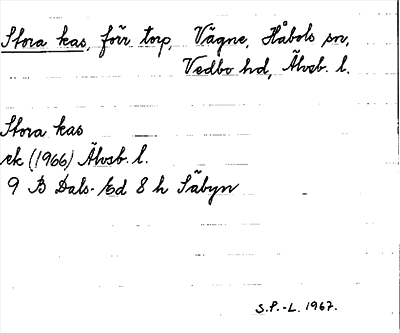 Stora kas, förr torp, Vägne, Håbols sn,
Vedbo hd, Älvsb. l.
Stora kas
ek (1966) Älvsb. l.
9 B Dals-Ed 8 h Säbyn
S.P.-L. 1967.